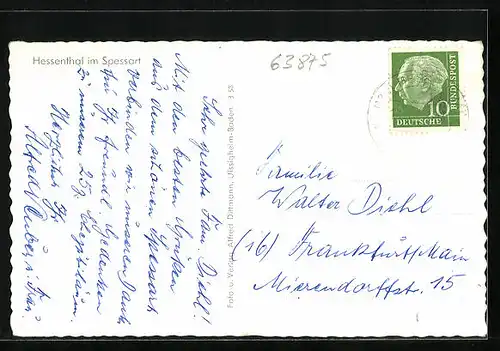 Hessenthal im Spessart
63875
10
DEUTSCHE
BUNDESPOST
Sehr geehrte Fam. Diehl!
Mit den besten Grüßen
aus dem schönen Spessart
verbinden wir unseren Dank
für Ihr freundl. Gedenken
zu unserem 25jg.
Herzlichst Ihr
Alfred
Foto u. Verlag Alfred Dittmann, Uissigheim-Baden
Familie
Walter Diehl
(16) Frankfurt/Main
Mierendorffstr. 15